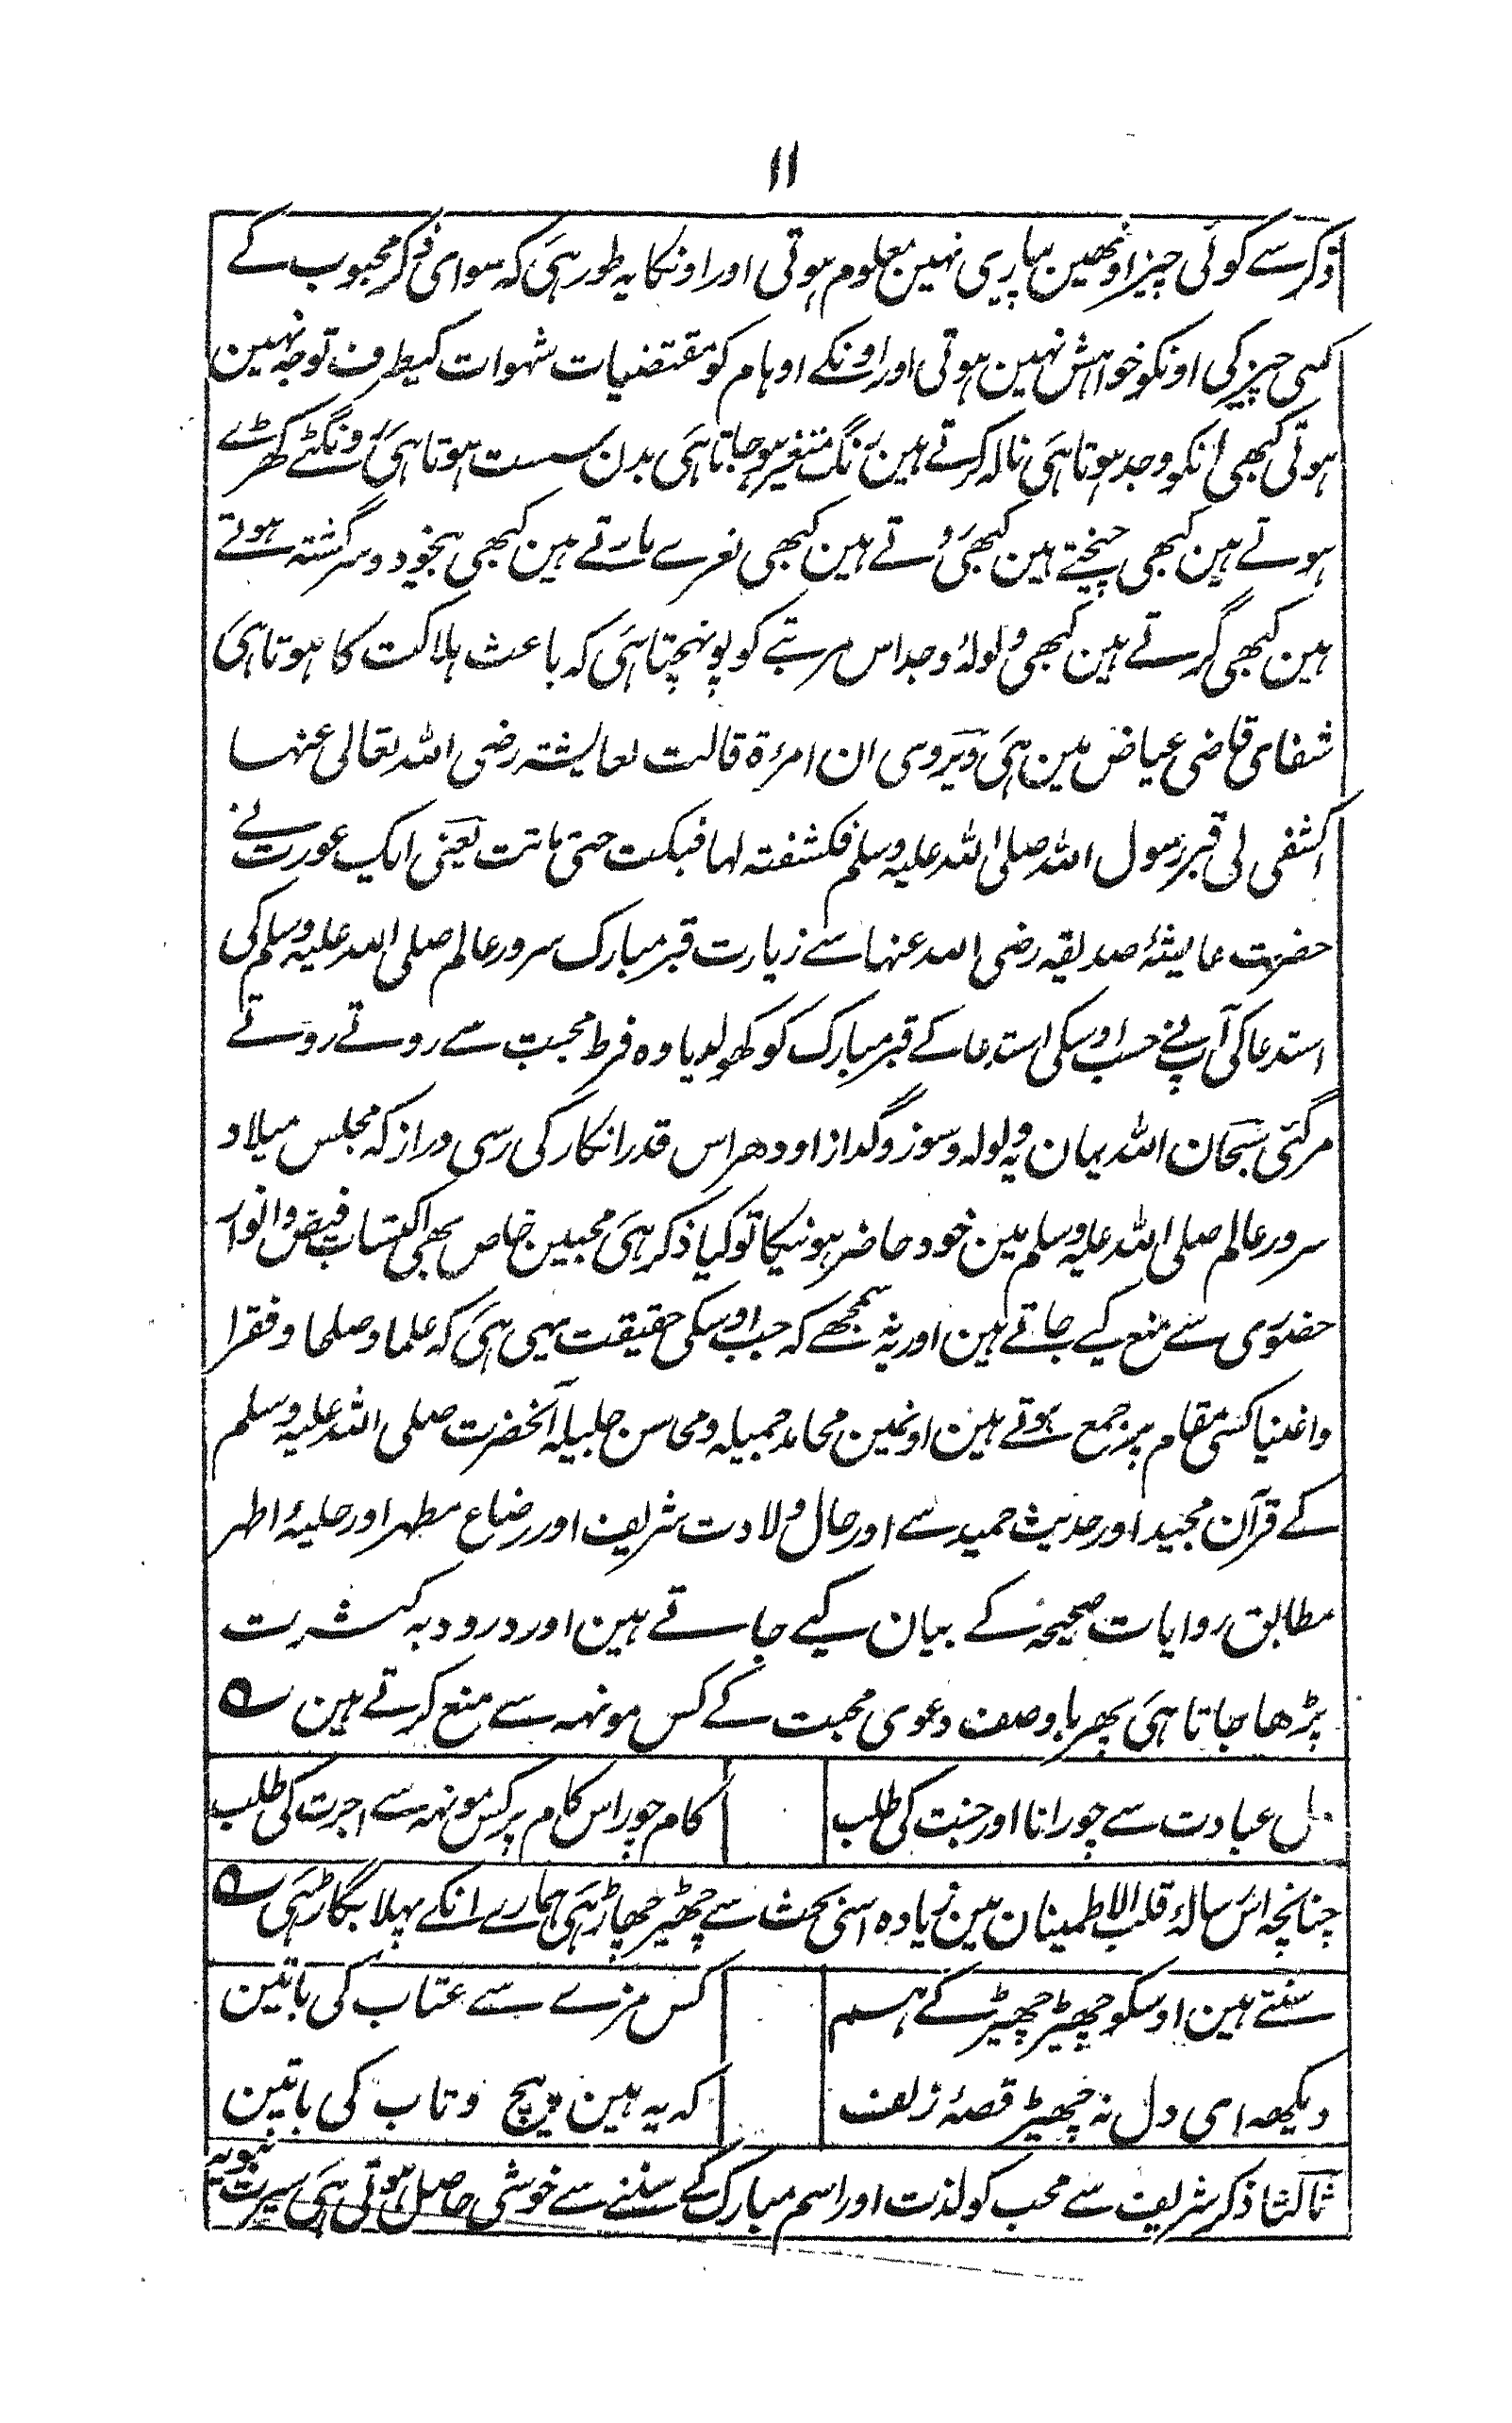 ۱۱
ذکر سے کوئی چیز اونھین پیاری نہین معلوم ہوتی اور اونکا یہ طور ہی کہ سوای ذکر محبوب کے
کسی چیز کی اونکو خواہش نہین ہوتی اور اونکے اوہام کو مقتضیات شہوات کیطرف توجہ نہین
ہوتی کبھی انکو وجد ہوتا ہی نالہ کرتے ہین رنگ متغیر ہو جاتا ہی بدن سست ہوتا ہی رونگٹے کھڑے
ہوتے ہین کبھی چیختے ہین کبھی روتے ہین کبھی نعرے مارتے ہین کبھی بیخود و سرگشتہ ہوتے
ہین کبھی گرتے ہین کبھی ولولۂ وجد اس مرتبے کو پونہچتا ہی کہ باعث ہلاکت کا ہوتا ہی
شفای قاضی عیاض مین ہی ویروی ان امرءۃ قالت لعایشۃ رضی اللہ تعالی عنہا
اکشفی لی قبر رسول اللہ صلی اللہ علیہ وسلم فکشفتہ لہا فبکت حتی ماتت یعنی ایک عورت نے
حضرت عایشۂ صدیقہ رضی اللہ عنہا سے زیارت قبر مبارک سرور عالم صلی اللہ علیہ وسلم کی
استدعا کی آپنے حسب اوسکی استدعا کے قبر مبارک کو کھولدیا وہ فرط محبت سے روتے روتے
مرگئی سبحان اللہ یہان یہ ولولہ و سوز و گداز اودھر اس قدر انکار کی رسی دراز کہ مجلس میلاد
سرور عالم صلی اللہ علیہ وسلم مین خود حاضر ہونیکا تو کیا ذکر ہی محبین خاص بھی اکتساب فیض و انوار
حضوری سے منع کیے جاتے ہین اور یہ نہ سمجھے کہ جب اوسکی حقیقت یہی ہی کہ علما و صلحا و فقرا
و اغنیا کسی مقام پر جمع ہوتے ہین اونمین محامد جمیلہ و محاسن جلیلہ آنحضرت صلی اللہ علیہ وسلم
کے قرآن مجید اور حدیث حمید سے اور حال ولادت شریف اور رضاع مطہر اور حلیۂ اطہر
مطابق روایات صحیحہ کے بیان کیے جاتے ہین اور درود بہ کثرت
پڑھا جاتا ہی پھر باوصف دعوی محبت کے کس مونہہ سے منع کرتے ہین ؎
دل عبادت سے چورانا اور جنت کی طلب
کام چور اس کام پر کس مونہہ سے اجرت کی طلب
چنانچہ اس رسالۂ قلب الاطمینان مین زیادہ اسی بحث سے چھیڑ چھاڑ ہی ہمارے انکے پہلا بگاڑ ہی ؎
سنتے ہین اوسکو چھیڑ چھیڑ کے ہم
کس مزے سے عتاب کی باتین
دیکھہ ای دل نہ چھیڑ قصۂ زلف
کہ یہ ہین پیچ و تاب کی باتین
ثالثا ذکر شریف سے محب کو لذت اور اسم مبارک کے سننے سے خوشی حاصل ہوتی ہی سیرت نبویہ